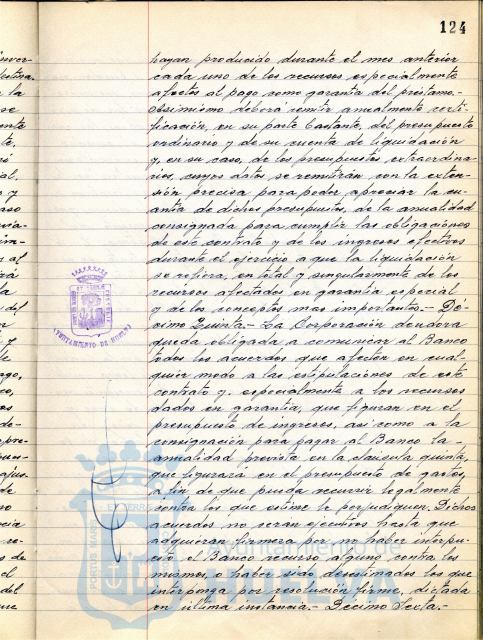 124
hayan producido durante el mes anterior
cada uno de los recursos especialmente
afectos al pago como garantía del préstamo.-
Asimismo deberá remitir anualmente certi-
ficación, en su parte bastante, del presupuesto
ordinario y de su cuenta de liquidación
y, en su caso, de los presupuestos extraordina-
rios, cuyos datos se remitirán con la exten-
sión precisa para poder apreciar la cu-
antía de dichos presupuestos, de la anualidad
consignada para cumplir las obligaciones
de este contrato y de los ingresos efectivos
durante el ejercicio a que la liquidación
se refiera, en total y singularmente de los
recursos afectados en garantía especial
y de los conceptos mas importantes.- Dé-
cimo Quinta.- La Corporación deudora
queda obligada a comunicar al Banco
todos los acuerdos que afecten en cual-
quier modo a las estipulaciones de este
contrato y, especialmente a los recursos
dados en garantía, que figuran en el
presupuesto de ingresos, así como a la
consignación para pagar al Banco la -
anualidad prevista en la cláusula quinta,
que figurará en el presupuesto de gastos,
a fin de que pueda recurrir legalmente
contra los que estime le perjudiquen. Dichos
acuerdos no serán ejecutivos hasta que
adquieran firmeza por no haber interpu-
esto el Banco recurso alguno contra los
mismos, o haber sido desestimados los que
interponga por resolución firme, dictada
en última instancia.- Décimo Sexta.-
AYUNTAMIENTO DE HUELVA
PORTUS MARIS
Ayuntamiento de
HUELVA